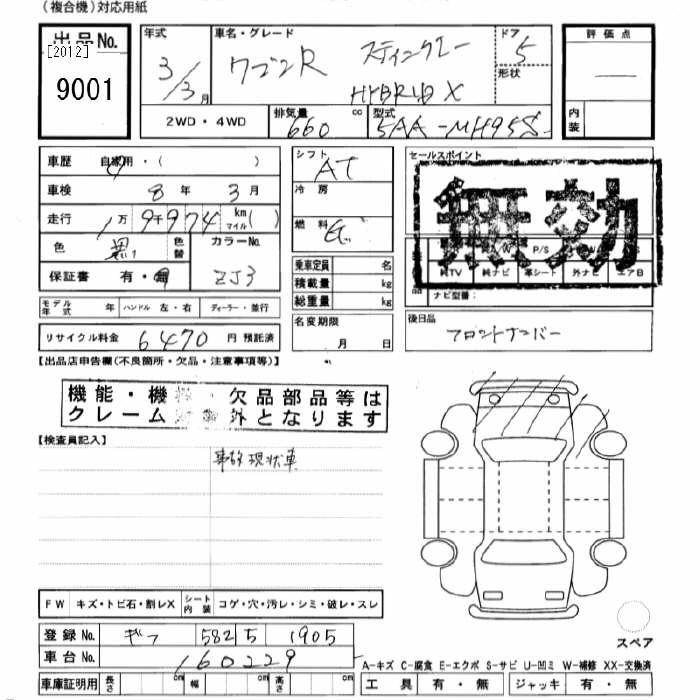 (複合機)対応用紙
出品No.
[2012]
9001
年式
3/3月
車名・グレード
ワゴンR スティングレー
HYBRID X
ドア
5
形状
評価点
内装
2WD・4WD
排気量
660 cc
型式
5AA-MH95S
車歴 自家用・( )
車検 8年 3月
走行 1万9千974 km マイル ( )
色 黒 色替 カラーNo.
保証書 有・無 ZJ3
モデル年式 年 ハンドル 左・右 ディーラー・並行
リサイクル料金 6470 円 預託済
シフト AT
冷房
燃料 ガ
乗車定員 名
積載量 kg
総重量 kg
名変期限
月 日
セールスポイント
無効
P/S
純TV 純ナビ 革シート 外ナビ エアB
ナビ型番:
後日品
フロントナンバー
【出品店申告欄(不良箇所・欠品・注意事項等)】
機能・機 ・欠品部品等は
クレーム 外となります
【検査員記入】
事故現状車
FW キズ・トビ石・割レX シート内装 コゲ・穴・汚レ・シミ・破レ・スレ
登録No. ギフ 582 5 1905
車台No. 160229
車庫証明用 長さ cm 幅 cm 高さ cm
スペア
A-キズ C-腐食 E-エクボ S-サビ U-凹ミ W-補修 XX-交換済
工具 有・無 ジャッキ 有・無